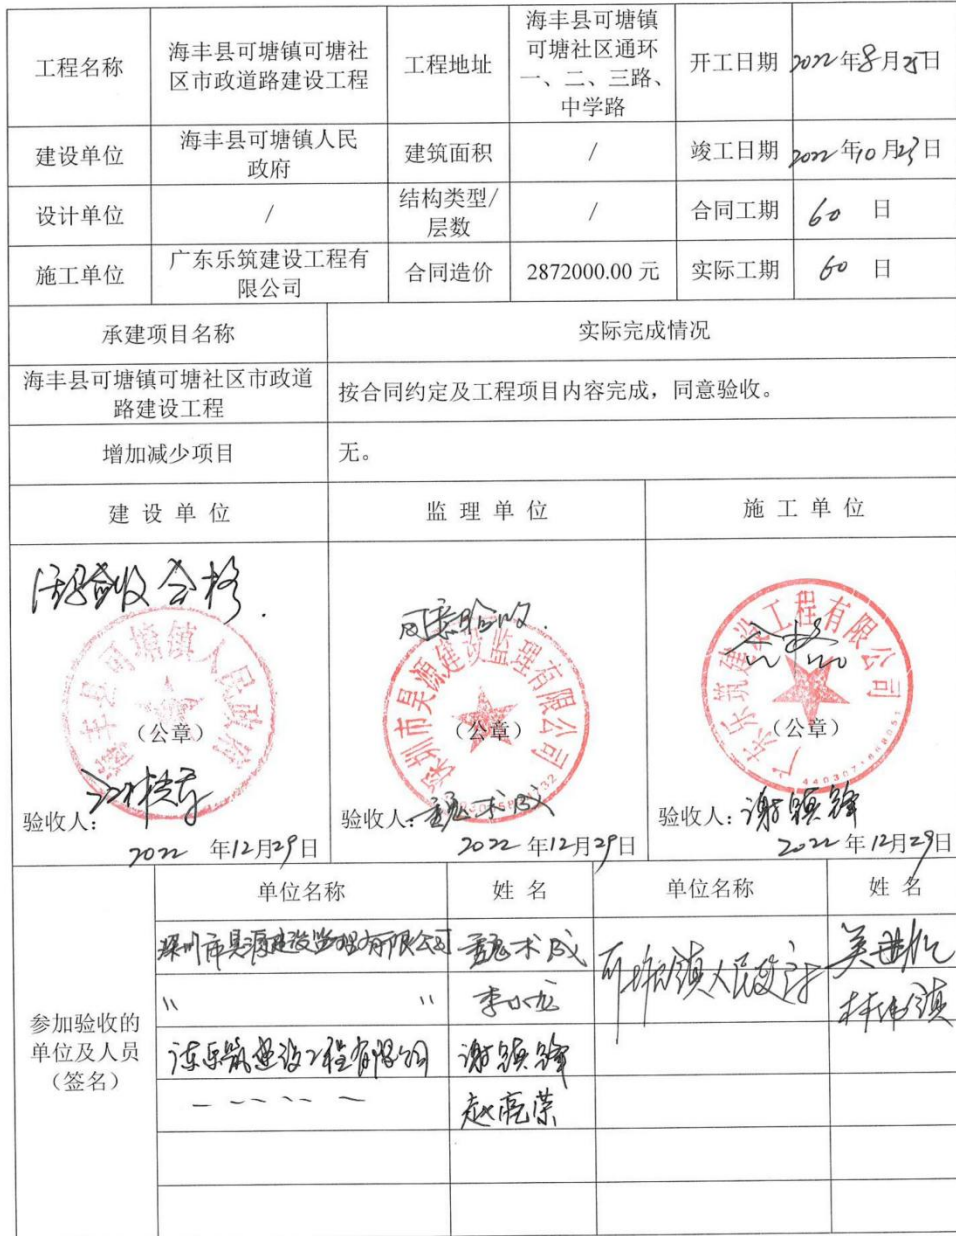 工程名称
海丰县可塘镇可塘社
区市政道路建设工程
工程地址
海丰县可塘镇
可塘社区通环
一、二、三路、
中学路
开工日期
2022年8月25日
建设单位
海丰县可塘镇人民
政府
建筑面积
/
竣工日期
2022年10月23日
设计单位
/
结构类型/
层数
/
合同工期
60 日
施工单位
广东乐筑建设工程有
限公司
合同造价
2872000.00 元
实际工期
60 日
承建项目名称
实际完成情况
海丰县可塘镇可塘社区市政道
路建设工程
按合同约定及工程项目内容完成，同意验收。
增加减少项目
无。
建 设 单 位
监 理 单 位
施 工 单 位
验收合格.
海丰县可塘镇人民政府
（公章）
验收人：
2022 年12月29日
同意验收.
深圳市昊源建设监理有限公司
（公章）
验收人：魏术成
2022 年12月29日
合格
广东乐筑建设工程有限公司
（公章）
验收人：谢镇锋
2022 年12月29日
参加验收的
单位及人员
（签名）
单位名称
姓 名
单位名称
姓 名
深圳市昊源建设监理有限公司
魏术成
可塘镇人民政府
〃 〃
李小龙
林伟镇
广东乐筑建设工程有限公司
谢镇锋
赵亮荣